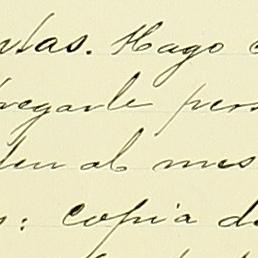 ntas. Hago
regarle pers
den al mes
s: copia de